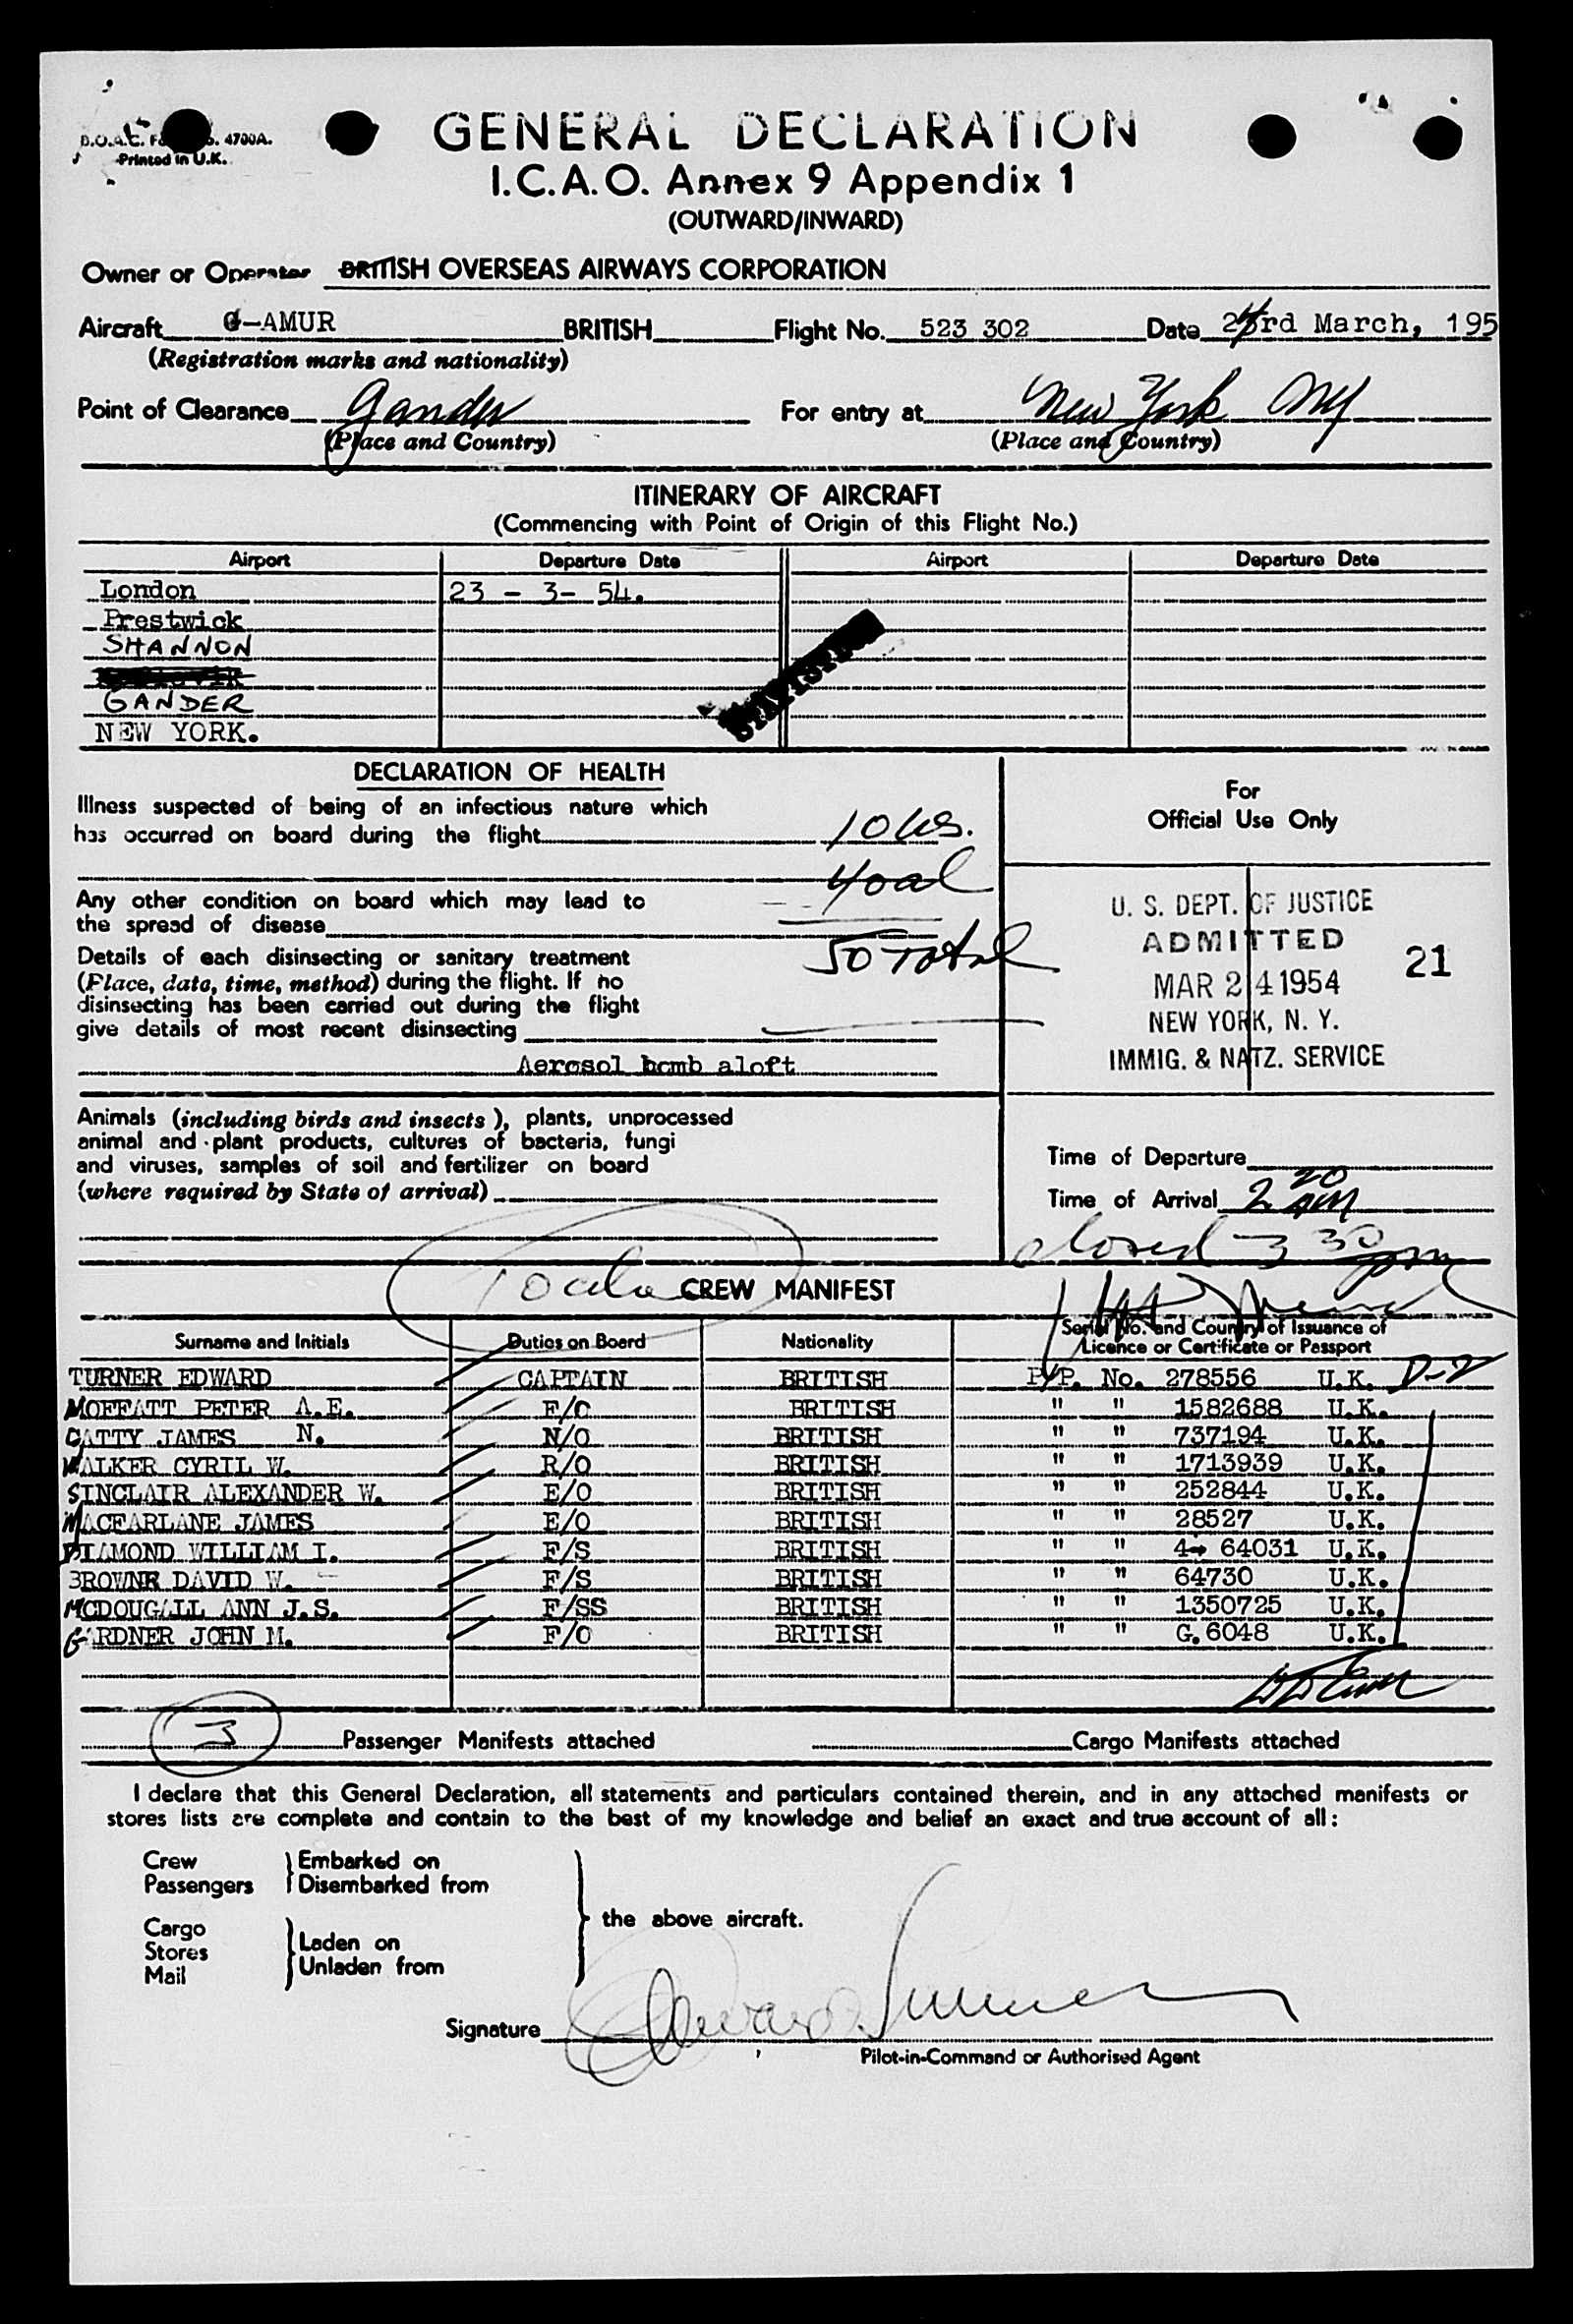 B.O.A.C. 4700A.
Printed in U.K.
GENERAL DECLARATION
I.C.A.O. Annex 9 Appendix 1
(OUTWARD/INWARD)
Owner or Operator BRITISH OVERSEAS AIRWAYS CORPORATION
Aircraft G-AMUR BRITISH Flight No. 523 302 Date 23rd March, 195
(Registration marks and nationality)
Point of Clearance Gander For entry at New York NY
(Place and Country) (Place and Country)
ITINERARY OF AIRCRAFT
(Commencing with Point of Origin of this Flight No.)
Airport Departure Date Airport Departure Date
London 23 - 3- 54.
Prestwick
SHANNON
GANDER
NEW YORK.
DECLARATION OF HEALTH
Illness suspected of being of an infectious nature which
has occurred on board during the flight 10 us.
40 al
Any other condition on board which may lead to
the spread of disease
50 Total
Details of each disinsecting or sanitary treatment
(Place, date, time, method) during the flight. If no
disinsecting has been carried out during the flight
give details of most recent disinsecting
Aerosol bomb aloft
Animals (including birds and insects), plants, unprocessed
animal and plant products, cultures of bacteria, fungi
and viruses, samples of soil and fertilizer on board
(where required by State of arrival)
For
Official Use Only
U. S. DEPT. OF JUSTICE
ADMITTED
21
MAR 24 1954
NEW YORK, N. Y.
IMMIG. & NATZ. SERVICE
Time of Departure
Time of Arrival 2 20 AM
closed 3 30 pm
CREW MANIFEST
Surname and Initials Duties on Board Nationality Serial No. and Country of Issuance of
Licence or Certificate or Passport
TURNER EDWARD CAPTAIN BRITISH P/P. No. 278556 U.K. D-2
MOFFATT PETER A.E. F/O BRITISH " " 1582688 U.K.
CATTY JAMES N. N/O BRITISH " " 737194 U.K.
WALKER CYRIL W. R/O BRITISH " " 1713939 U.K.
SINCLAIR ALEXANDER W. E/O BRITISH " " 252844 U.K.
MACFARLANE JAMES E/O BRITISH " " 28527 U.K.
DIAMOND WILLIAM I. F/S BRITISH " " 64031 U.K.
BROWNR DAVID W. F/S BRITISH " " 64730 U.K.
MCDOUGALL ANN J.S. F/SS BRITISH " " 1350725 U.K.
GARDNER JOHN M. F/O BRITISH " " G.6048 U.K.
3 Passenger Manifests attached Cargo Manifests attached
I declare that this General Declaration, all statements and particulars contained therein, and in any attached manifests or
stores lists are complete and contain to the best of my knowledge and belief an exact and true account of all:
Crew Embarked on
Passengers Disembarked from
the above aircraft.
Cargo
Stores Laden on
Mail Unladen from
Signature Edward Turner
Pilot-in-Command or Authorised Agent